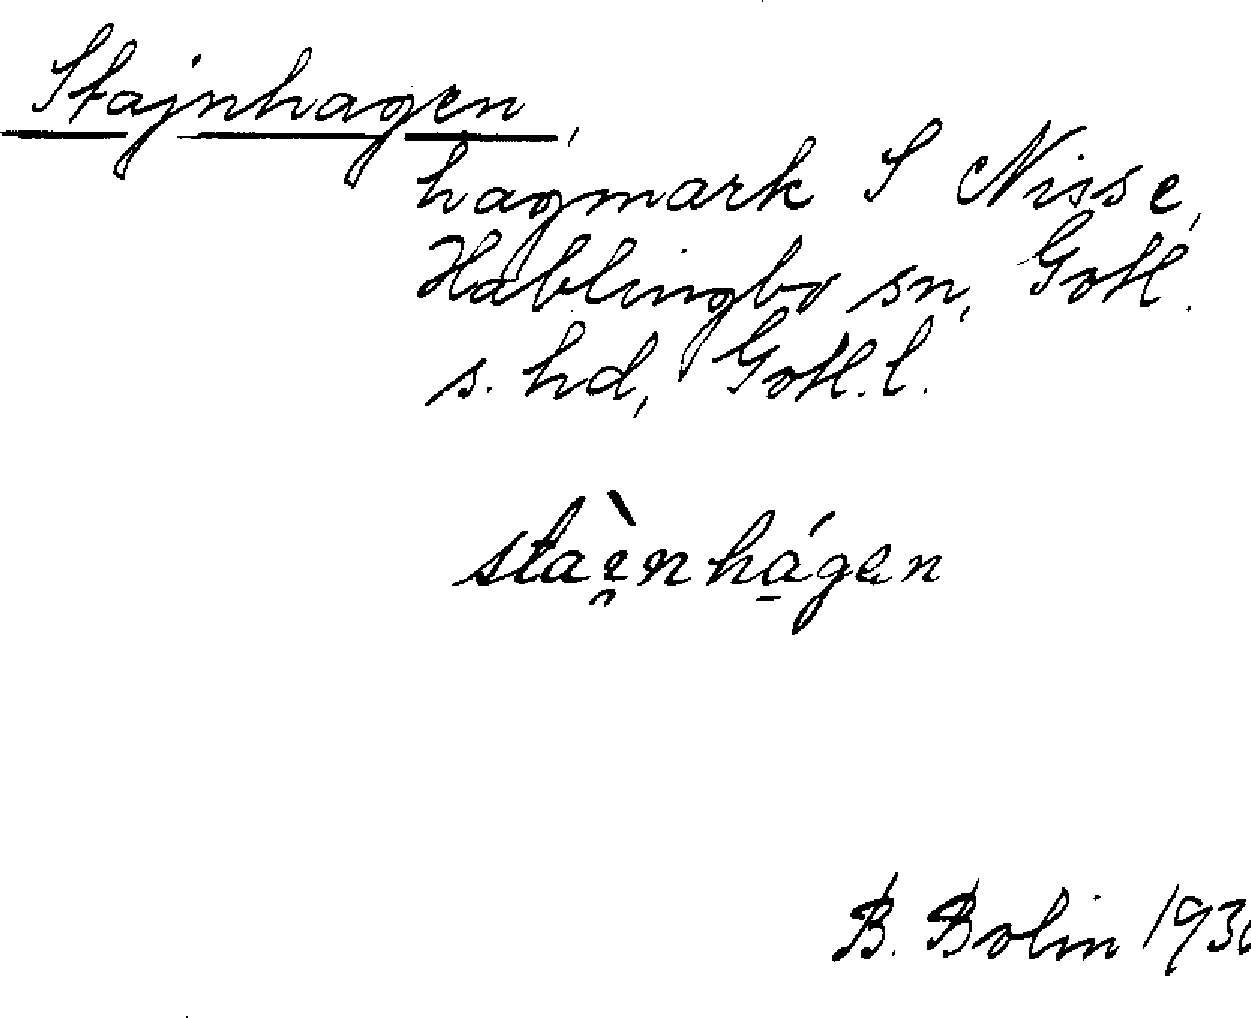 Stajnhagen,
hagmark S Nisse,
Hablingbo sn, Gotl.
s. hd, Gotl. l.
staì̯nhá̱gen
B. Bolin